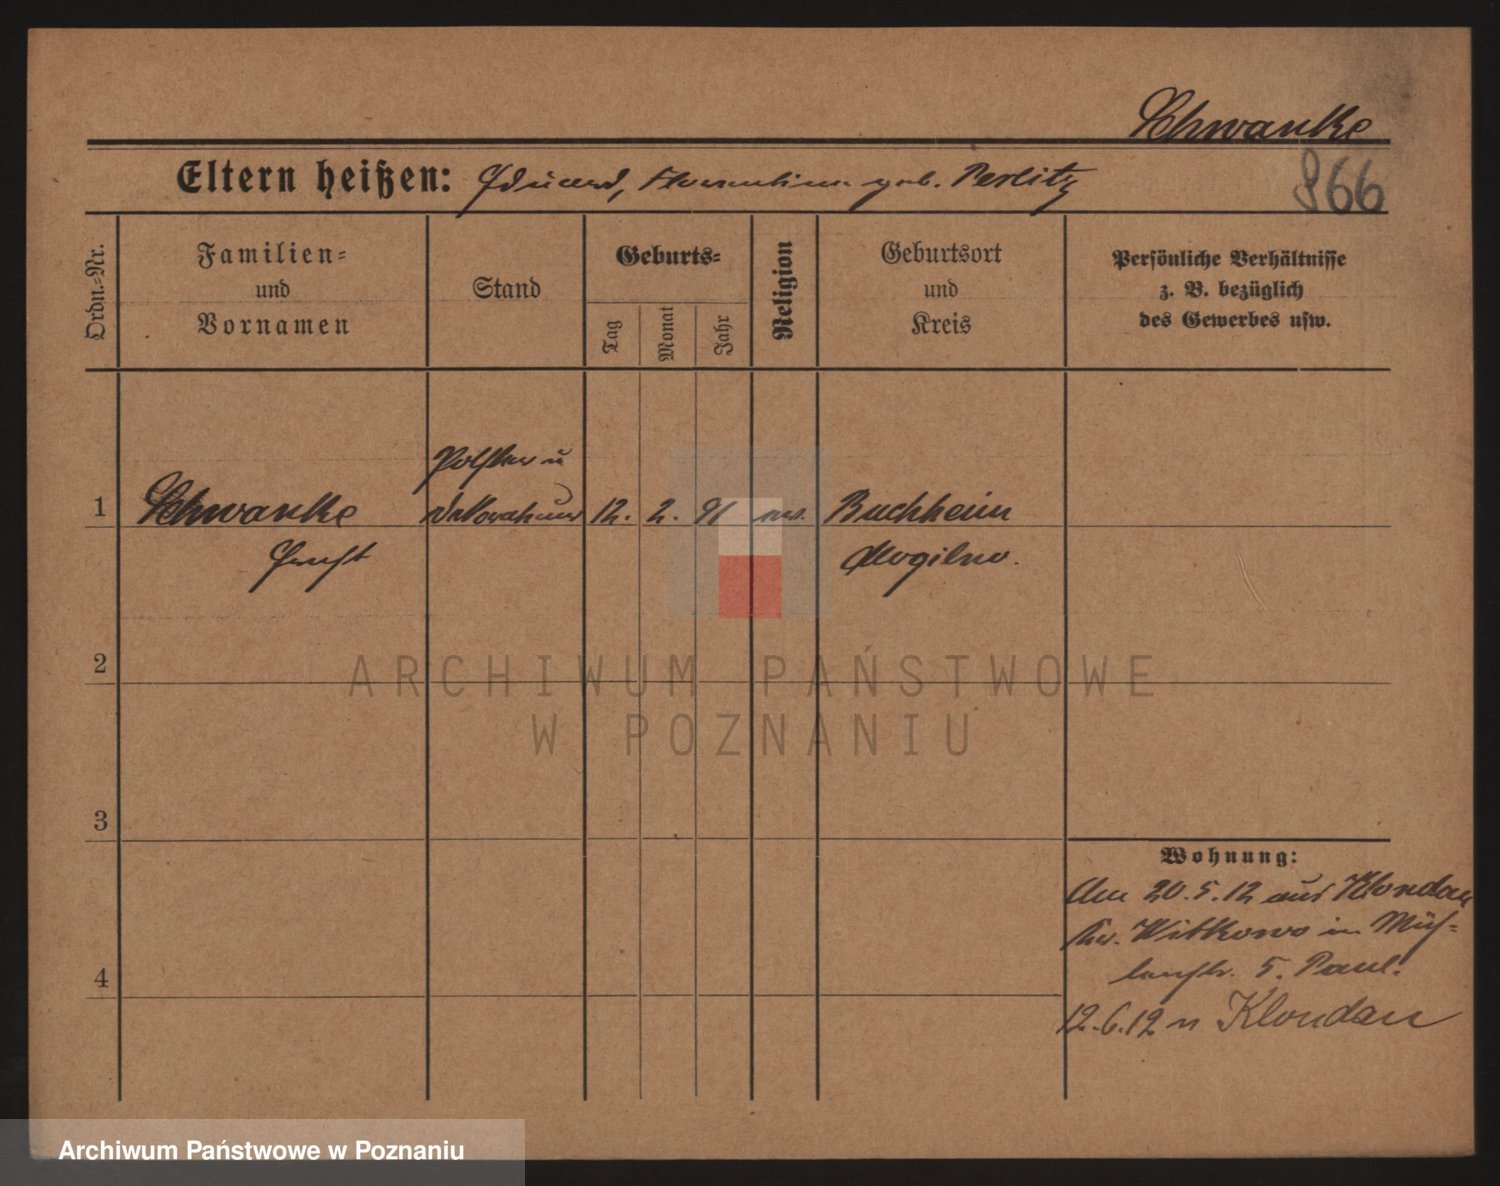 Schwanke
866
Eltern heißen: Eduard, Florentine geb. Perlitz
Ordn.-Nr.
Familien-
und
Vornamen
Stand
Geburts-
Tag
Monat
Jahr
Religion
Geburtsort
und
Kreis
Persönliche Verhältnisse
z. B. bezüglich
des Gewerbes usw.
Polster u
1 Schwanke Dekorateur 12. 2. 91 ev. Buchheim
Ernst Mogilno.
2
ARCHIWUM PAŃSTWOWE
W POZNANIU
3
Wohnung:
Am 20.5.12 aus Klondau
Kr. Witkowo in Müh-
lenstr. 5. Paul.
4
12.6.12 n Klondau
Archiwum Państwowe w Poznaniu